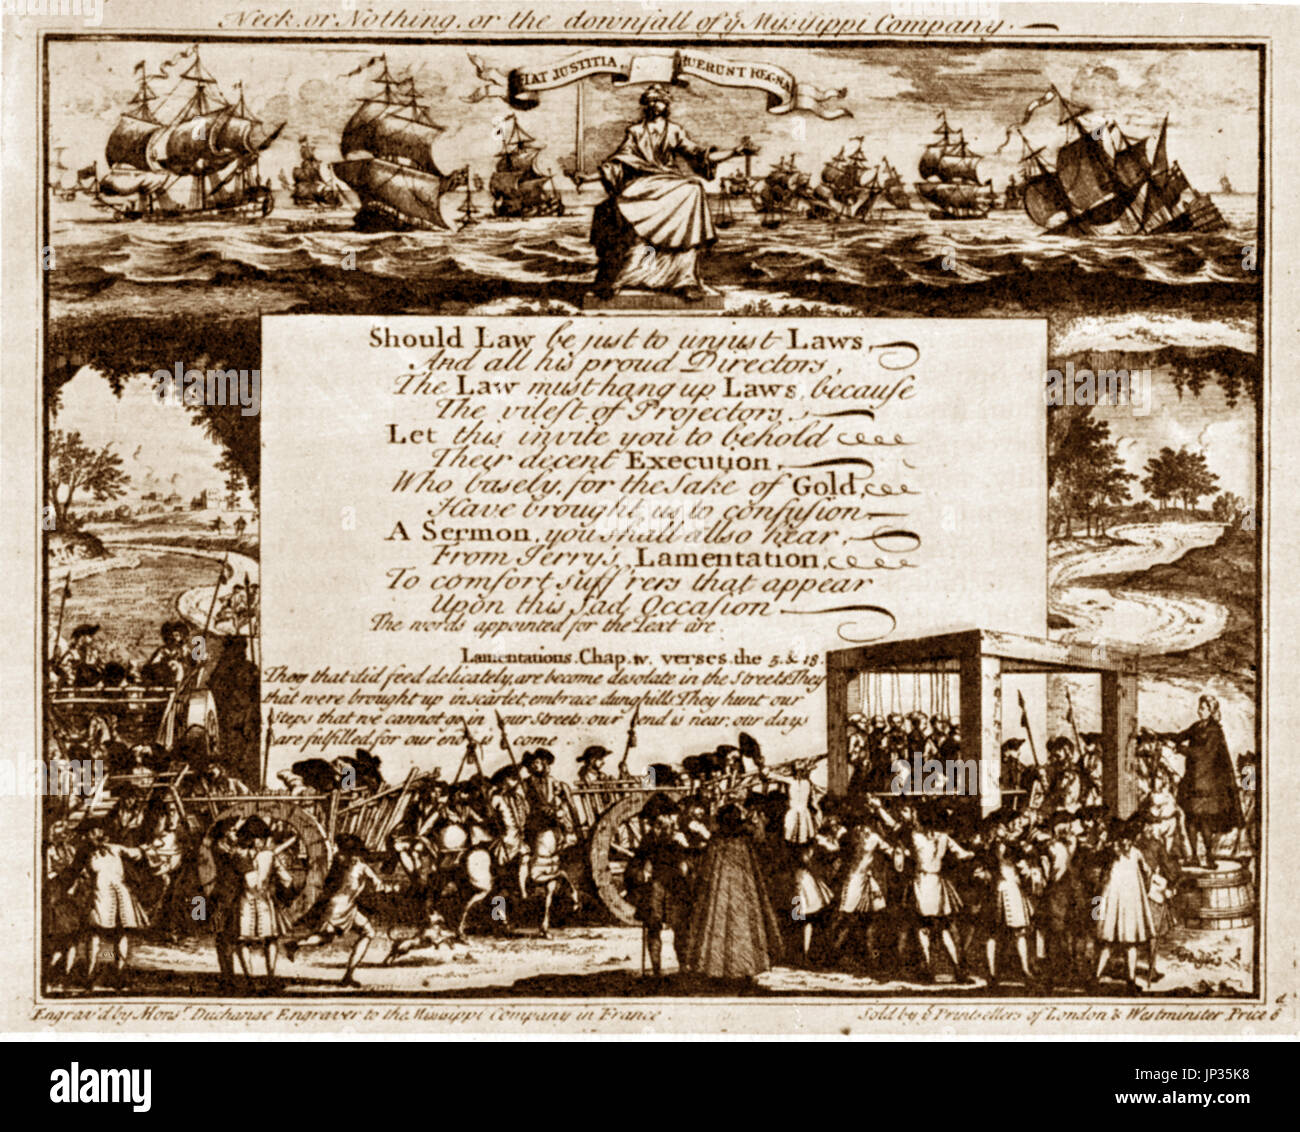 Neck or Nothing, or the downfall of yͤ Mysisippi Company
FIAT JUSTITIA, RUERUNT REGNA
Should Law be just to unjust Laws,
And all his proud Directors,
The Law must hang up Laws, because
The vilest of Projectors.
Let this invite you to behold
Their decent Execution,
Who basely, for the Sake of Gold,
Have brought us to confusion
A Sermon, you shall also hear,
From Jerry's, Lamentation,
To comfort Suff'rers that appear
Upon this Sad Occasion
The words appointed for the Text are
Lamentations. Chap. iv. verses. the 5. & 18.
They that did feed delicately, are become desolate in the Streets, They
that were brought up in scarlet, embrace dunghills. They hunt our
steps that we cannot go in our streets, our end is near, our days
are fulfilled, for our end is come
Engrav'd by Monsʳ. Duchange Engraver to the Missisippi Company in France.
Sold by yͤ Printsellers of London & Westminster Price 6ᵈ
alamy
Image ID: JP35K8
www.alamy.com